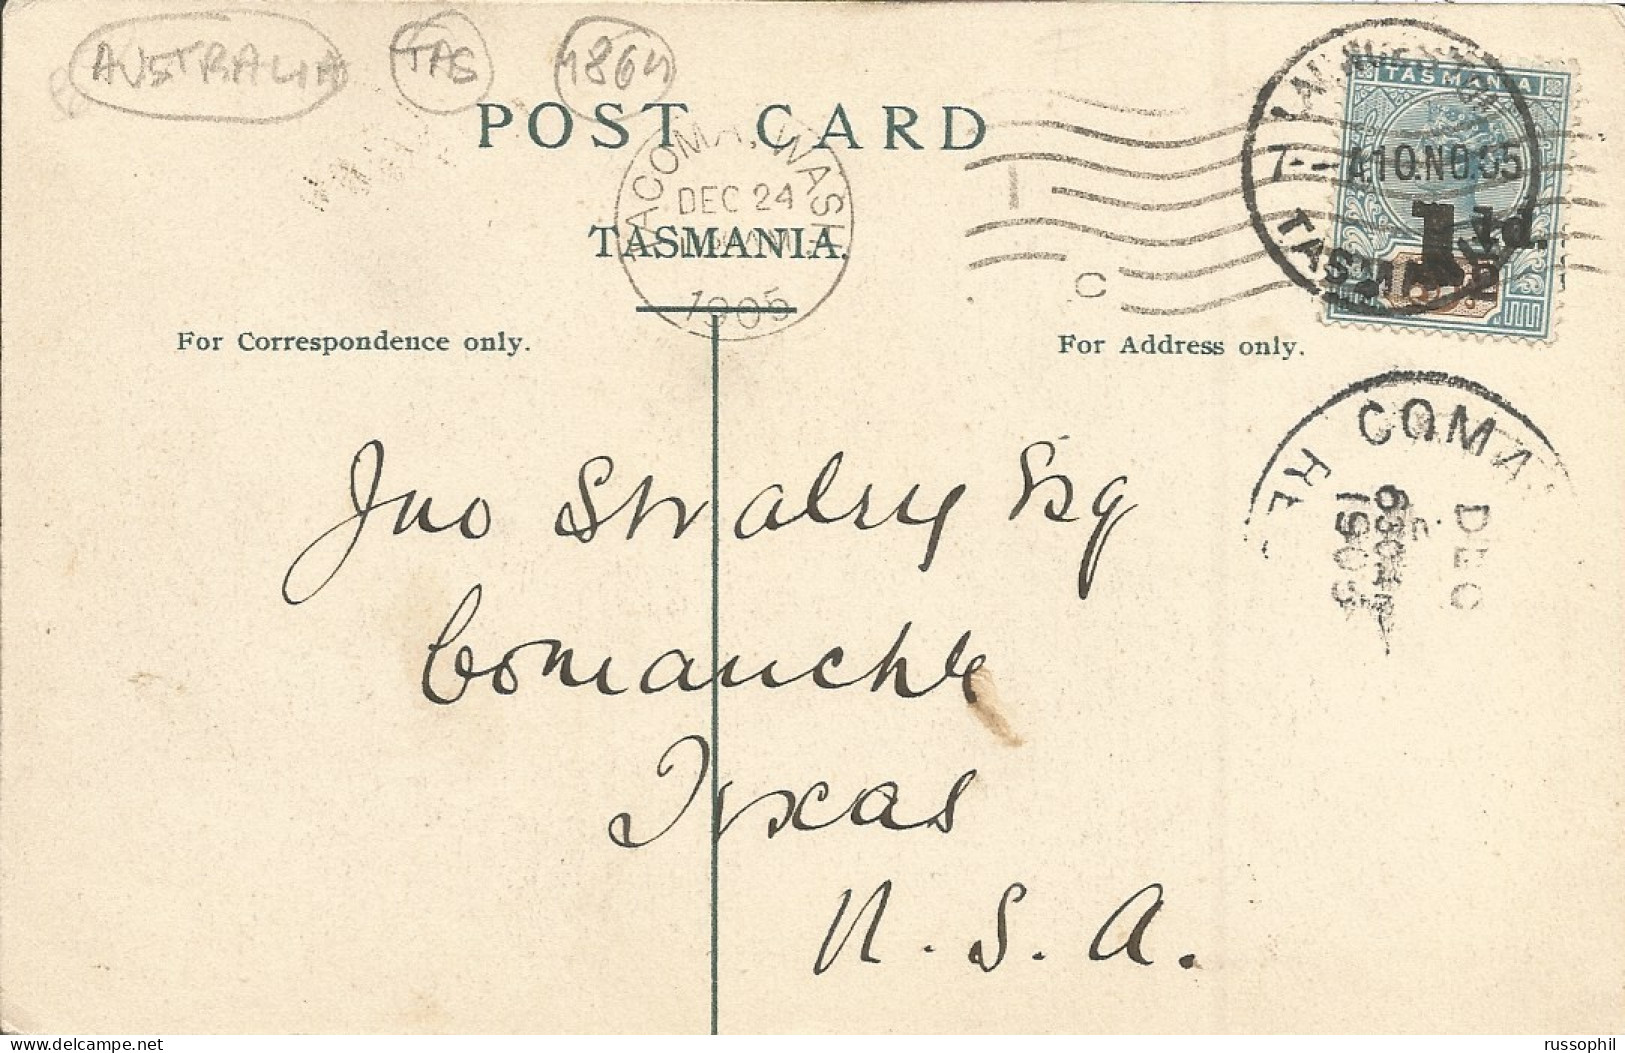 AUSTRALIA TAS 1864
POST CARD
TACOMA, WASH.
DEC 24
1905
TASMANIA.
For Correspondence only.
For Address only.
TASMANIA
7-- A.10.NO.05
TASMANIA
1½d.
C
COMA
DEC
630A
1905
Jno Swalry Esq
Comanche
Texas
U.S.A.
www.delcampe.net
russophil